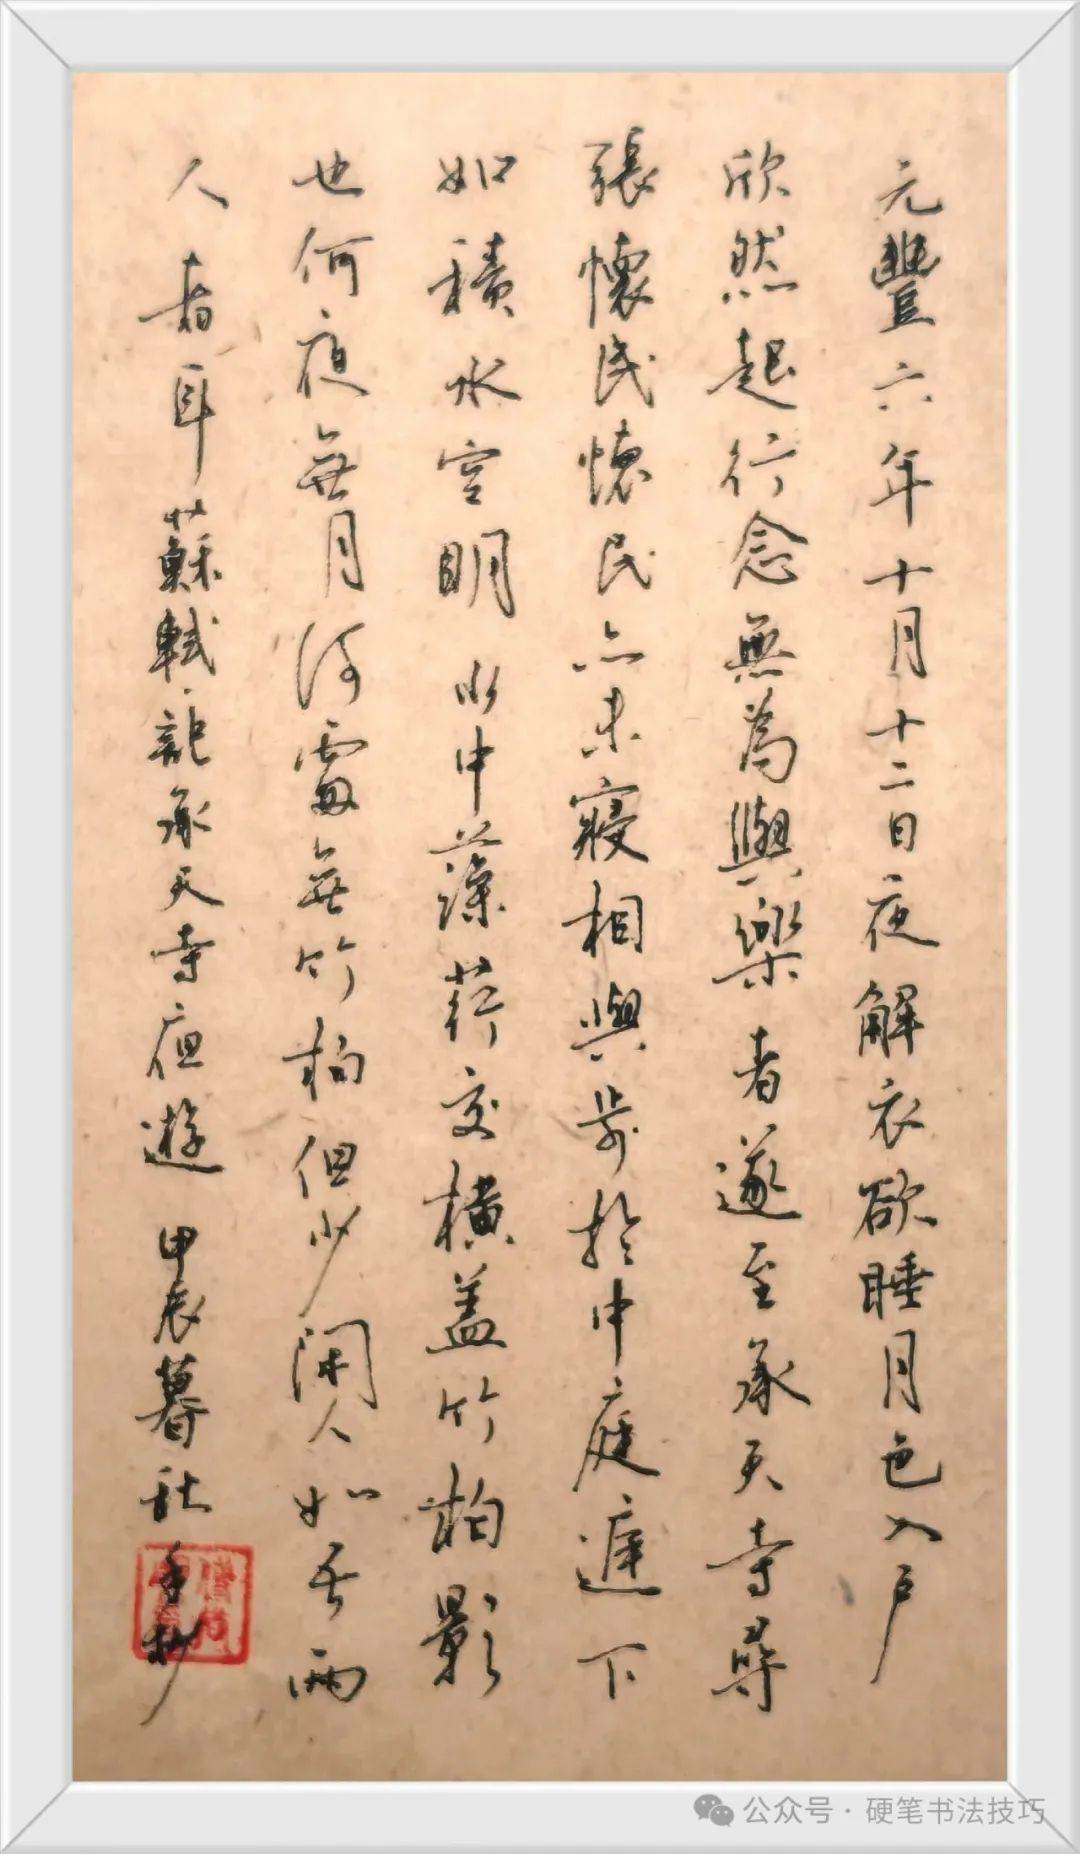 元豐六年十月十二日夜解衣欲睡月色入戶
欣然起行念無為與樂者遂至承天寺尋
張懷民懷民亦未寢相與步於中庭庭下
如積水空明水中藻荇交橫盖竹柏影
也何夜無月何處無竹柏但少閑人如吾兩
人者耳蘇軾記承天寺夜遊 甲辰暮秋手抄
公众号·硬笔书法技巧